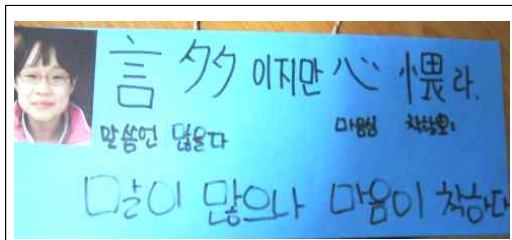 言 多 이지만 心 愄 라.
말씀언 많을다 마음심 착할외
말이 많으나 마음이 착하다